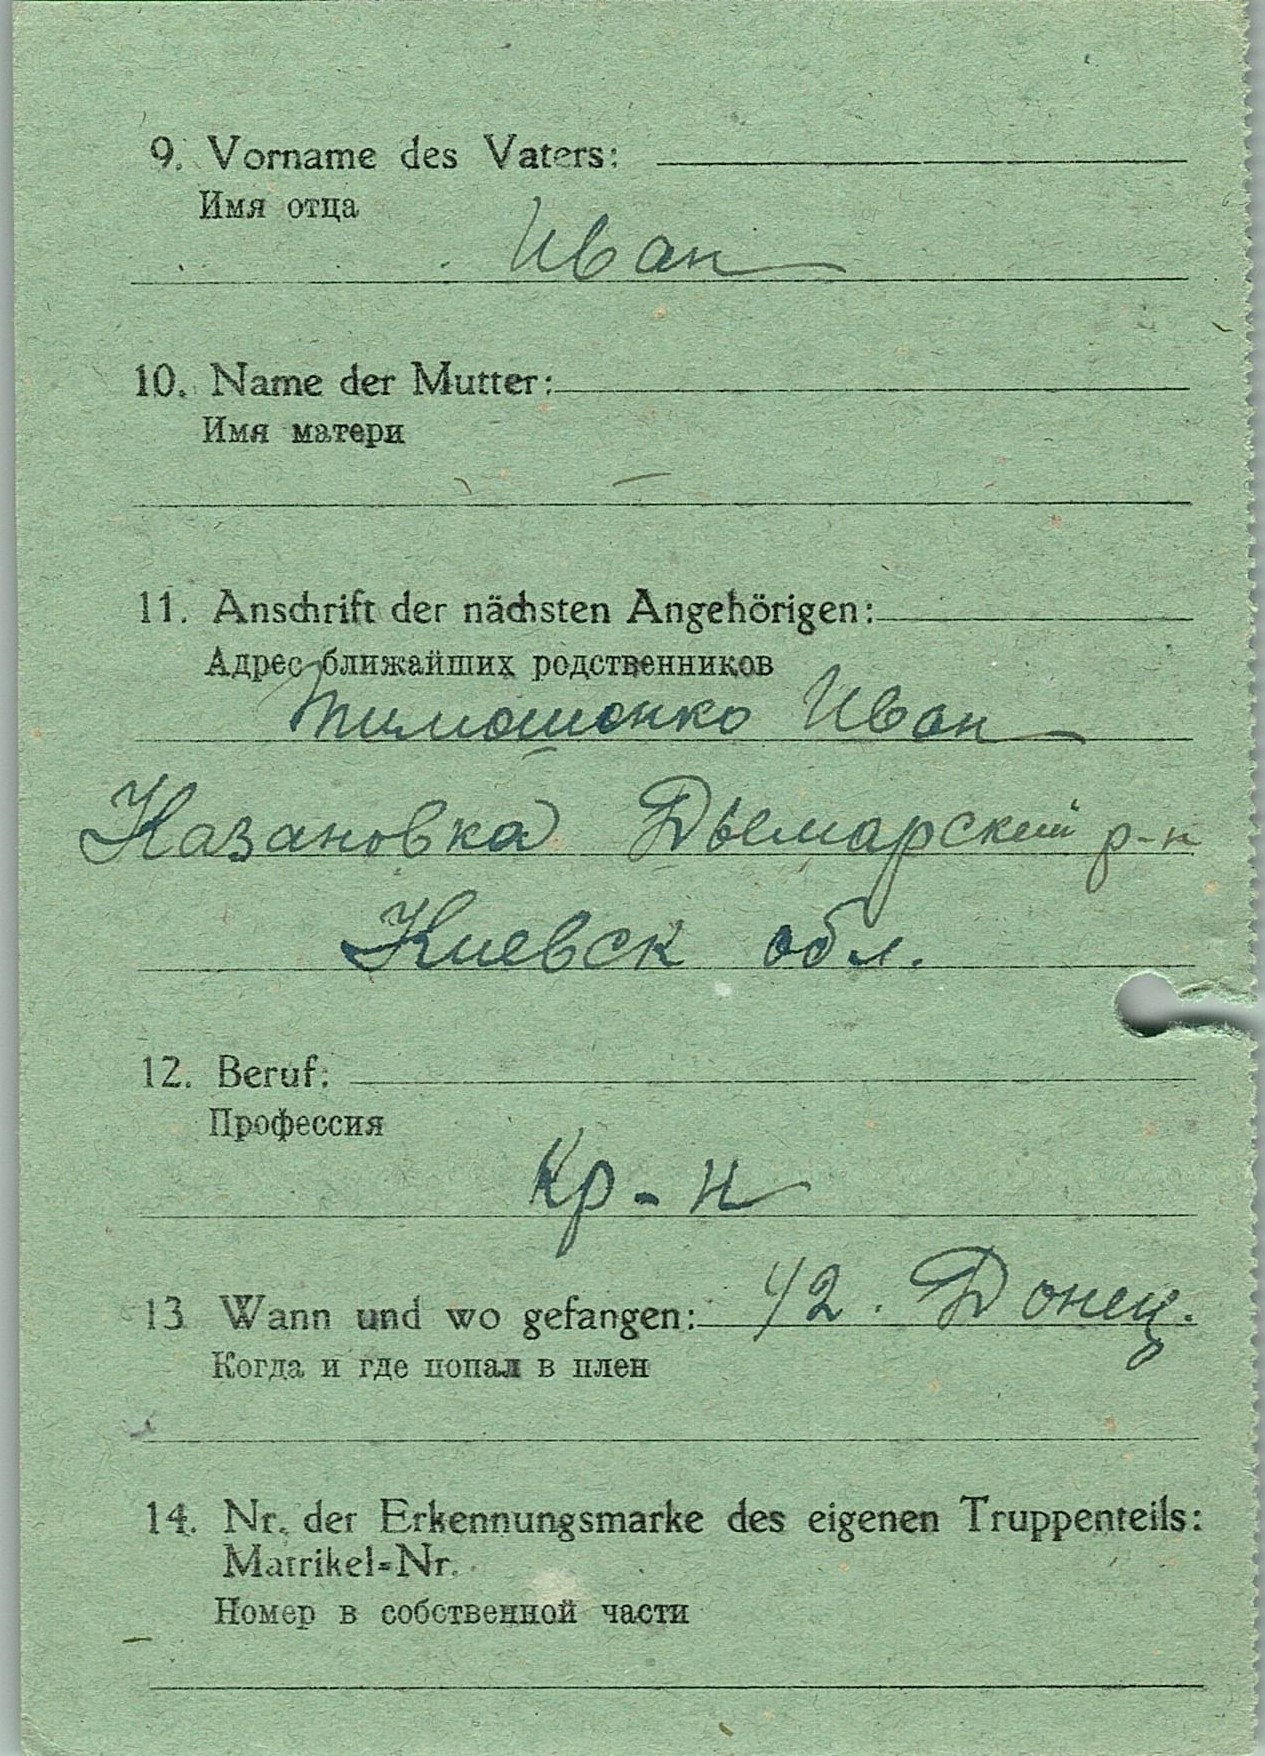 9. Vorname des Vaters:
Имя отца
Иван
10. Name der Mutter:
Имя матери
11. Anschrift der nächsten Angehörigen:
Адрес ближайших родственников
Тимошонко Иван
Казановка Дымарский р-н
Киевск обл.
12. Beruf:
Профессия
Кр-н
13 Wann und wo gefangen: 42. Донец.
Когда и где попал в плен
14. Nr. der Erkennungsmarke des eigenen Truppenteils:
Matrikel=Nr.
Номер в собственной части